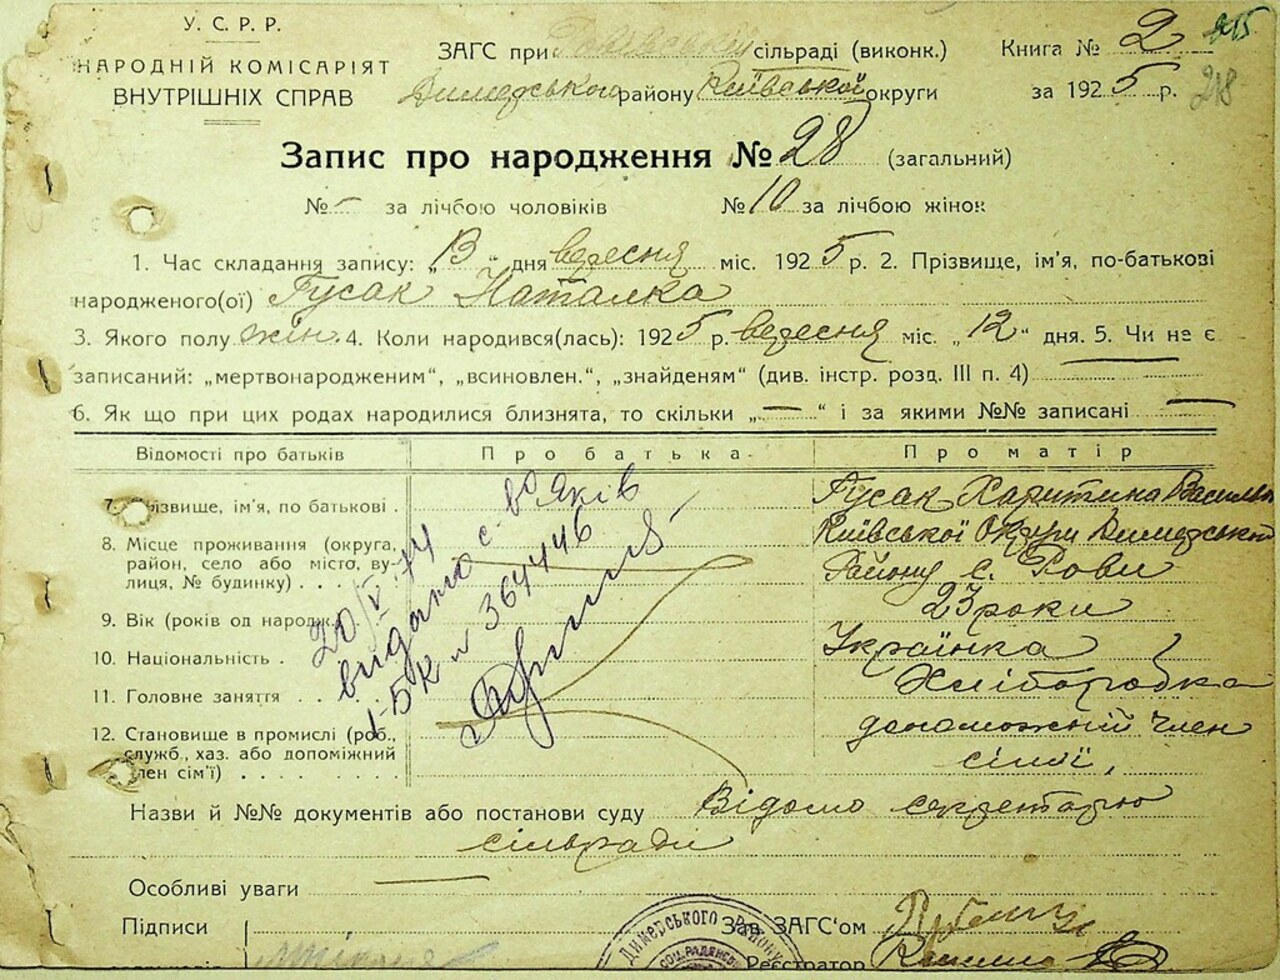 У. С. Р. Р.
НАРОДНІЙ КОМІСАРІЯТ
ВНУТРІШНІХ СПРАВ
ЗАГС при Ровівській сільраді (виконк.)
Димерського району Київської округи
Книга № 2
за 1925 р.
215
218
Запис про народження № 28 (загальний)
№ – за лічбою чоловіків № 10 за лічбою жінок
1. Час складання запису: „13“ дня вересня міс. 1925 р. 2. Прізвище, ім'я, по-батькові
народженого(ої) Гусак Наталка
3. Якого полу жін. 4. Коли народився(лась): 1925 р. вересня міс. „12“ дня. 5. Чи не є
записаний: „мертвонародженим“, „всиновлен.“, „знайденям“ (див. інстр. розд. III п. 4) —
6. Як що при цих родах народилися близнята, то скільки „—“ і за якими №№ записані —
Відомості про батьків Про батька Про матір
7. Прізвище, ім'я, по батькові . Гусак Харитина Василь
8. Місце проживання (округа, район, село або місто, вулиця, № будинку) Київської Округи Димерського
Району с. Рови
9. Вік (років од народж. 23 роки
10. Національність . Українка
11. Головне заняття . . . Хліборобка
12. Становище в промислі (роб., служб, хаз. або допоміжний член сім'ї) допоможній член
сімї,
20/V 74
видано с-во
І-БК № 364446
Назви й №№ документів або постанови суду Відомо секретарю
сільради
Особливі уваги —
Підписи
Зав. ЗАГС'ом
Реєстратор
Димерського Району